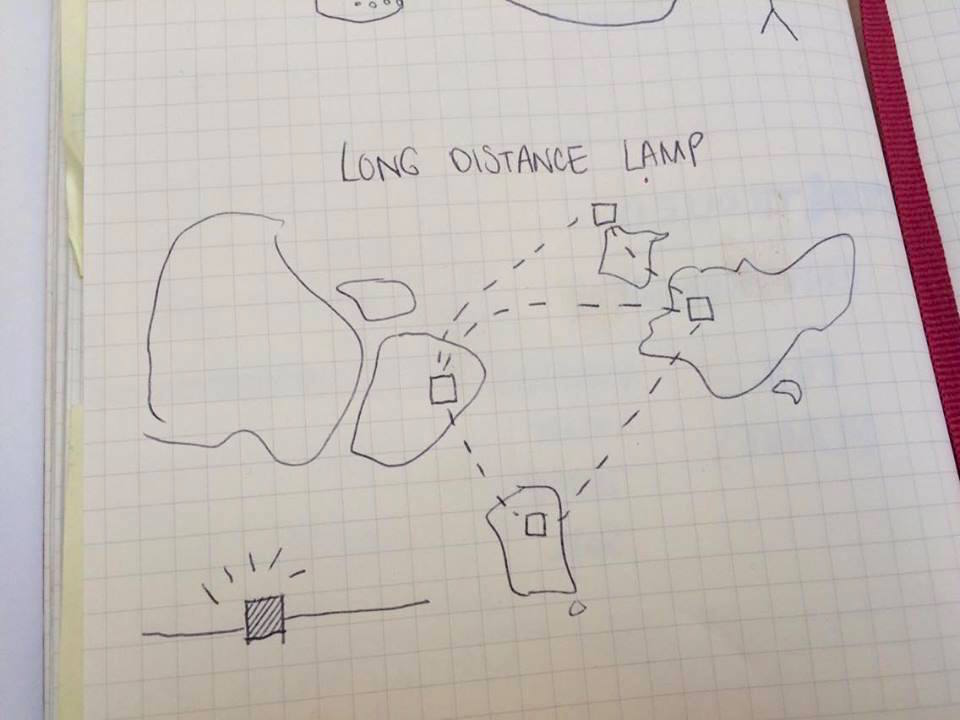 LONG DISTANCE LAMP